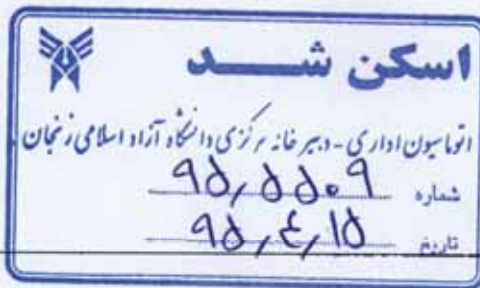 اسکن شد
اتوماسیون اداری - دبیرخانه مرکزی دانشگاه آزاد اسلامی زنجان
شماره ۹۵٫۵۵۰۹
تاریخ ۹۵٫۴٫۱۵